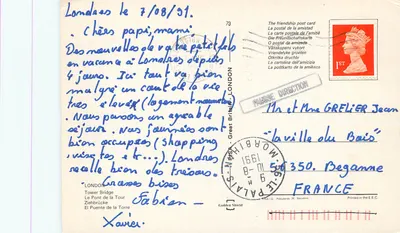 Londres le 7/08/91.
Chers papi, mami.
Des nouvelles de votre petit fils
en vacance à Londres depuis
4 jours. Ici tout va bien
malgré un cout de la vie
très élevé (logement
Nous passons un agréable
séjour. Nos journées sont
bien occupées (shopping,
visites etc...). Londres
recelle bien des trésors.
Grosses bises
Fabien
Xavier.
LONDON
Tower Bridge
Le Pont de la Tour
El Puente de la Torre
73
Great Britain LONDON
The friendship post card
La postal de la amistad
La carte postale de l'amitié
Die Freundschaftskarte
La cartolina dell'amicizia
La postal de l'amistat
1ST
56 LE PALAIS
MORBIHAN
1991
Mr et Mme GRELIER Jean
"La ville du Bois"
56350. Beganne
FRANCE